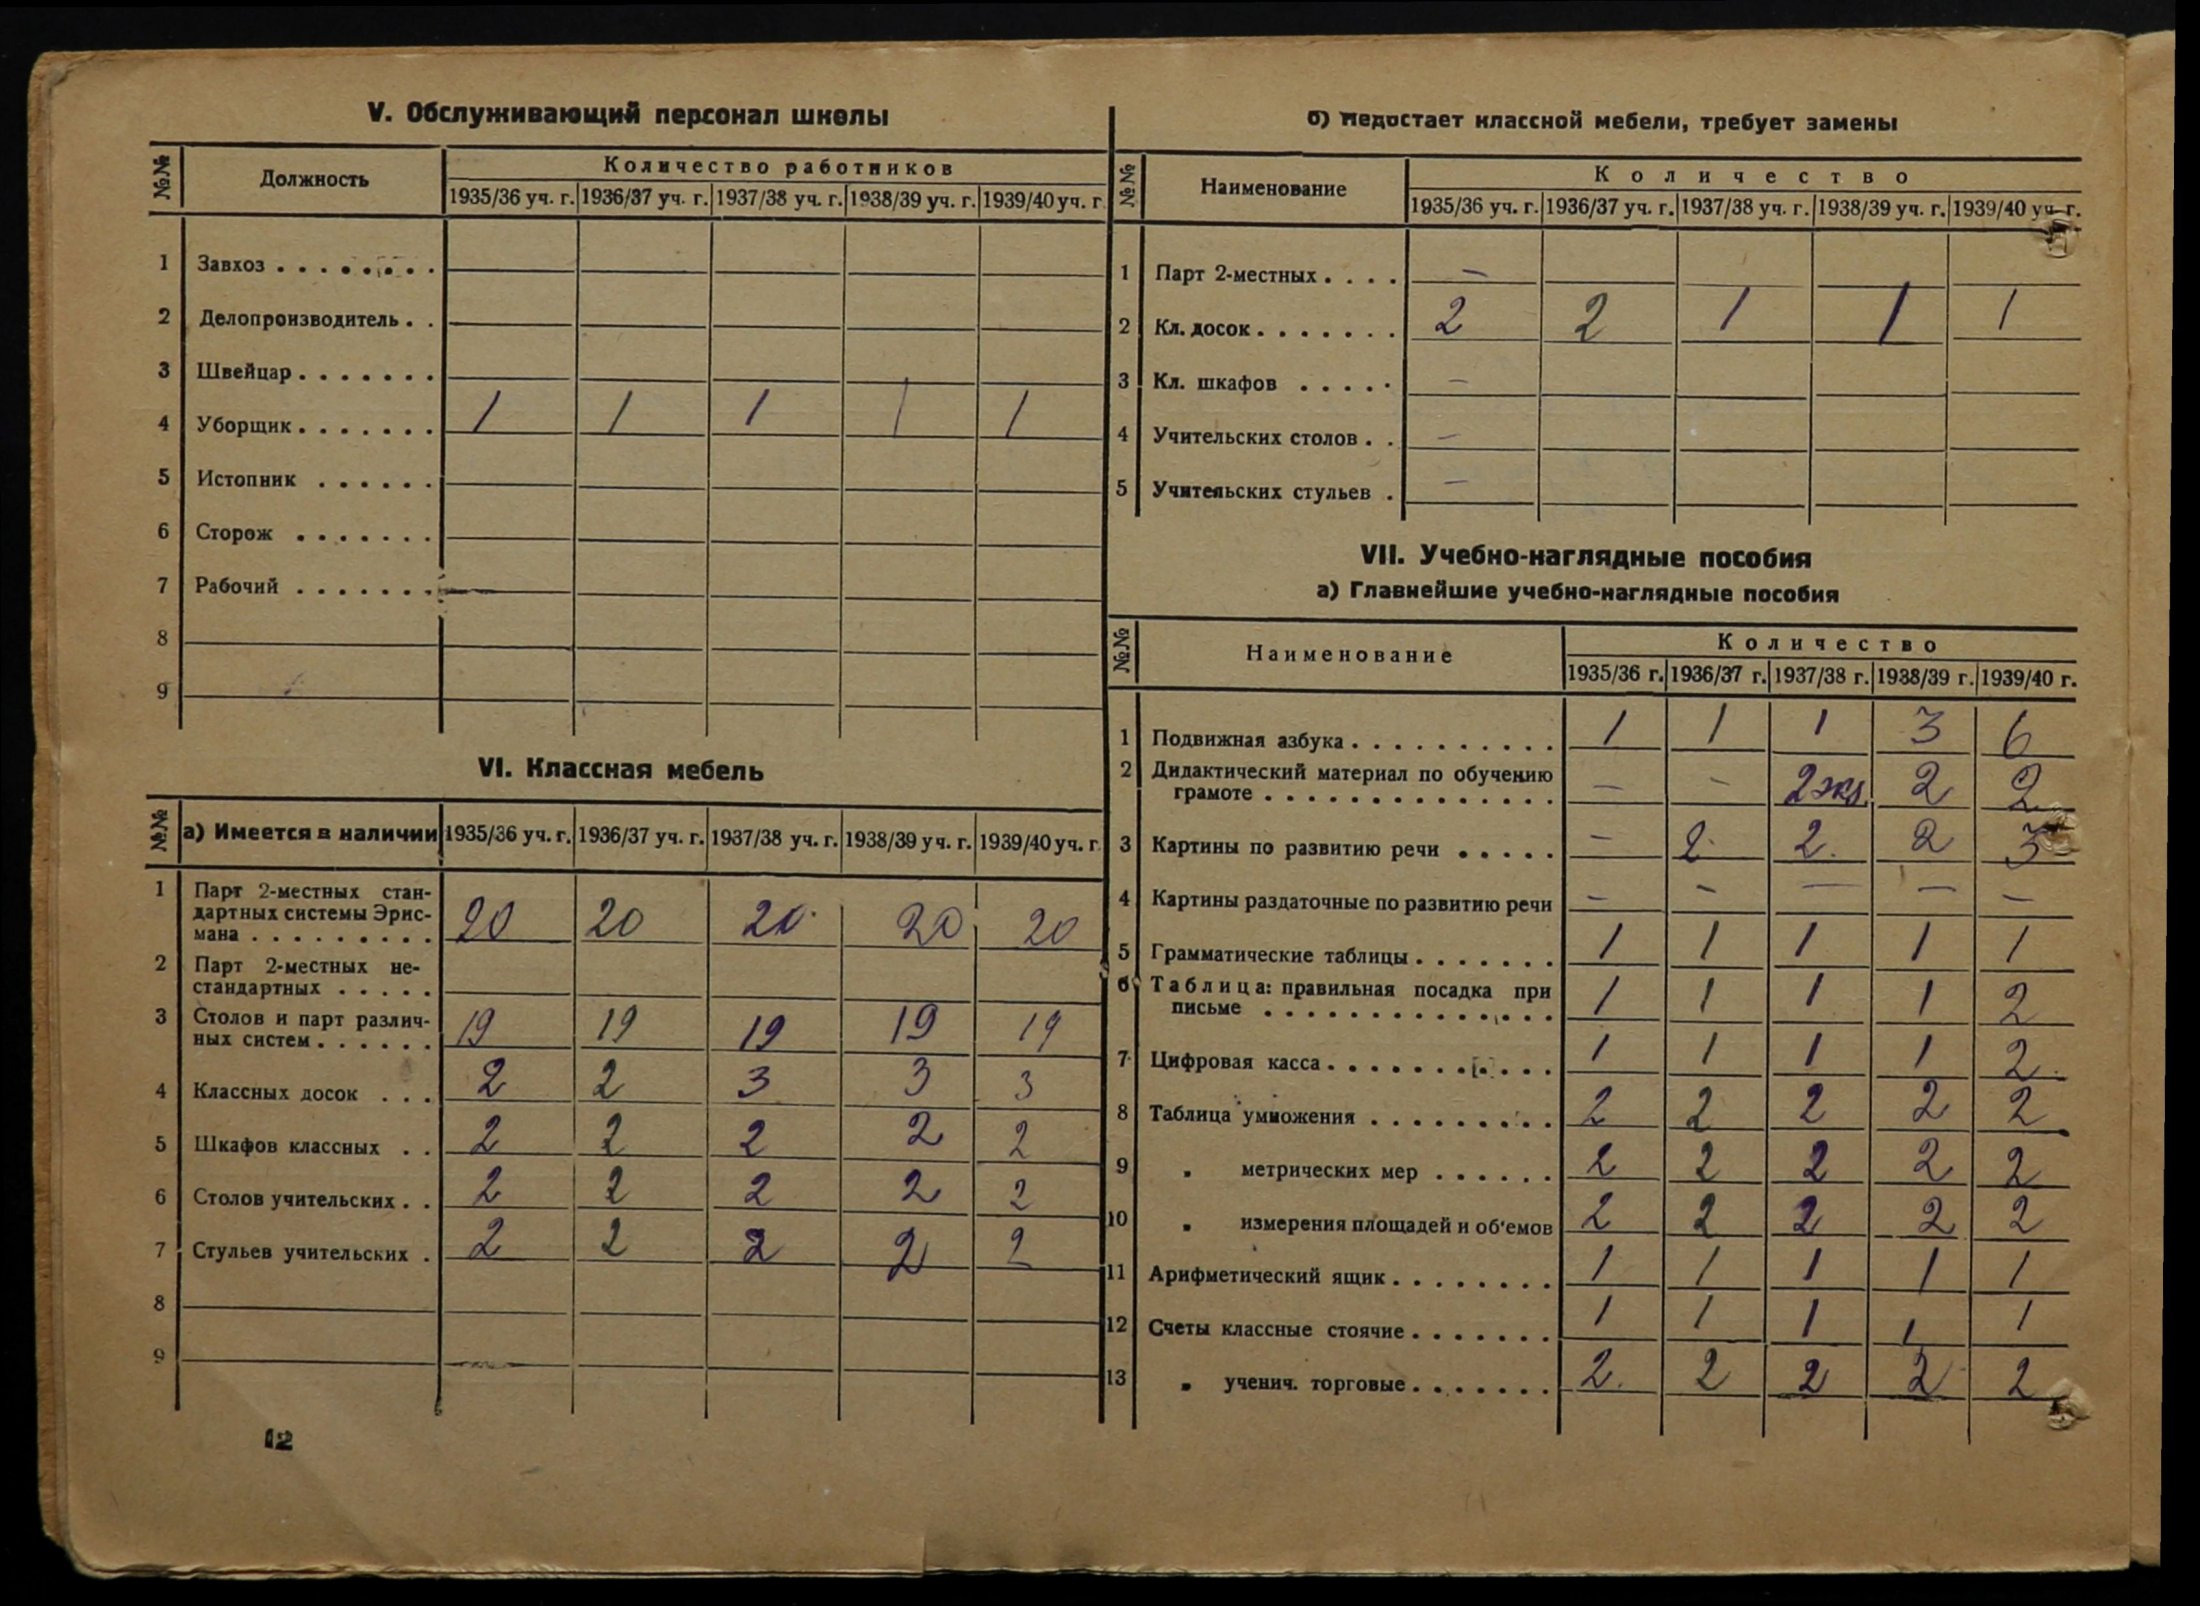 V. Обслуживающий персонал школы
№№ Должность Количество работников
1935/36 уч. г. 1936/37 уч. г. 1937/38 уч. г. 1938/39 уч. г. 1939/40 уч. г.
1 Завхоз . . . . . . . .
2 Делопроизводитель . .
3 Швейцар . . . . . . .
4 Уборщик . . . . . . . 1 1 1 1 1
5 Истопник . . . . . .
6 Сторож . . . . . . .
7 Рабочий . . . . . . .
8
9
VI. Классная мебель
№№ а) Имеется в наличии 1935/36 уч. г. 1936/37 уч. г. 1937/38 уч. г. 1938/39 уч. г. 1939/40 уч. г.
1 Парт 2-местных стан-
дартных системы Эрис-
мана . . . . . . . . . 20 20 20 20 20
2 Парт 2-местных не-
стандартных . . . . .
3 Столов и парт различ-
ных систем . . . . . . 19 19 19 19 19
4 Классных досок . . . 2 2 3 3 3
5 Шкафов классных . . 2 2 2 2 2
6 Столов учительских . . 2 2 2 2 2
7 Стульев учительских . 2 2 2 2 2
8
9
12
б) Недостает классной мебели, требует замены
№№ Наименование Количество
1935/36 уч. г. 1936/37 уч. г. 1937/38 уч. г. 1938/39 уч. г. 1939/40 уч. г.
1 Парт 2-местных . . . . —
2 Кл. досок . . . . . . . 2 2 1 1 1
3 Кл. шкафов . . . . . —
4 Учительских столов . . —
5 Учительских стульев . —
VII. Учебно-наглядные пособия
а) Главнейшие учебно-наглядные пособия
№№ Наименование Количество
1935/36 г. 1936/37 г. 1937/38 г. 1938/39 г. 1939/40 г.
1 Подвижная азбука . . . . . . . . . . 1 1 1 3 6
2 Дидактический материал по обучению
грамоте . . . . . . . . . . . . . . — — 2 экз. 2 2
3 Картины по развитию речи . . . . . — 2 2. 2 3
4 Картины раздаточные по развитию речи — — — — —
5 Грамматические таблицы . . . . . . . 1 1 1 1 1
6 Таблица: правильная посадка при
письме . . . . . . . . . . . . . . 1 1 1 1 2
7 Цифровая касса . . . . . . . . . . . 1 1 1 1 2
8 Таблица умножения . . . . . . . . . 2 2 2 2 2
9 „ метрических мер . . . . . . 2 2 2 2 2
10 „ измерения площадей и об'емов 2 2 2 2 2
11 Арифметический ящик . . . . . . . . 1 1 1 1 1
12 Счеты классные стоячие . . . . . . . 1 1 1 1 1
13 „ ученич. торговые . . . . . . . 2. 2 2 2 2